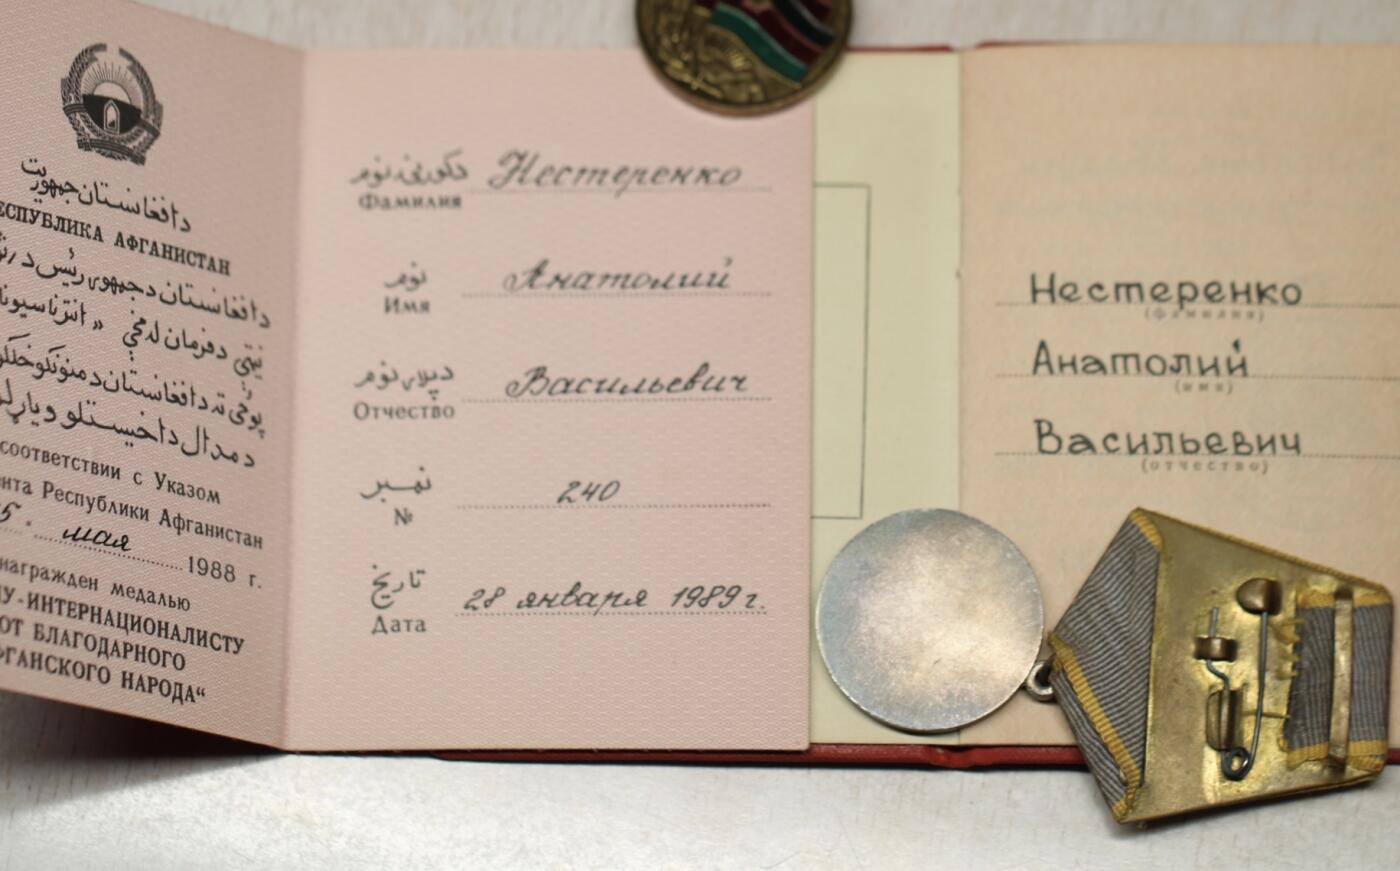 دافغانستان جمهوریت
ЕСПУБЛИКА АФГАНИСТАН
دافغانستان د جمهور رئیس د
نیټې د فرمان له مخې « انترناسیونا
پوځی ته د افغانستان د منونکو خلکو
د مدال د اخیستلو ویاړ
соответствии с Указом
нта Республики Афганистан
5 " мая 1988 г.
награжден медалью
У-ИНТЕРНАЦИОНАЛИСТУ
ОТ БЛАГОДАРНОГО
ФГАНСКОГО НАРОДА“
دکورنۍ نوم Нестеренко
Фамилия
نوم Анатолий
Имя
دپلار نوم Васильевич
Отчество
نمبر 240
№
تاریخ 28 января 1989 г.
Дата
Нестеренко
(фамилия)
Анатолий
(имя)
Васильевич
(отчество)